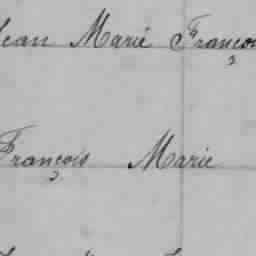 Jean Marie François
François Marie